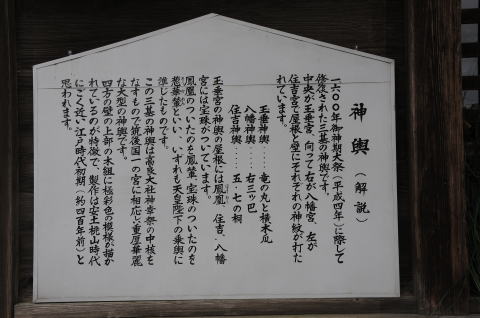 神輿（解説）
一六〇〇年御神期大祭（平成四年）に際して
修復された三基の神輿です。
中央が玉垂宮、向って右が八幡宮、左が
住吉宮で屋根や壁にそれぞれの神紋が打た
れています。
玉垂神輿……竜の丸と横木瓜
八幡神輿……右三ッ巴
住吉神輿……五・七の桐
玉垂宮の神輿の屋根には鳳凰、住吉・八幡
宮には宝珠がついています。
鳳凰のついたのを鳳輦、宝珠のついたのを
葱華輦といい、いずれも天皇陛下の乗輿に
準じたものです。
この三基の神輿は高良大社神幸祭の中核を
なすもので筑後国一の宮に相応し重厚華麗
な大型の神輿です。
四方の壁の上部の木組に極彩色の模様が描か
れているのが特徴で、製作は安土桃山時代
にごく近い江戸時代初期（約四百年前）と
思われます。